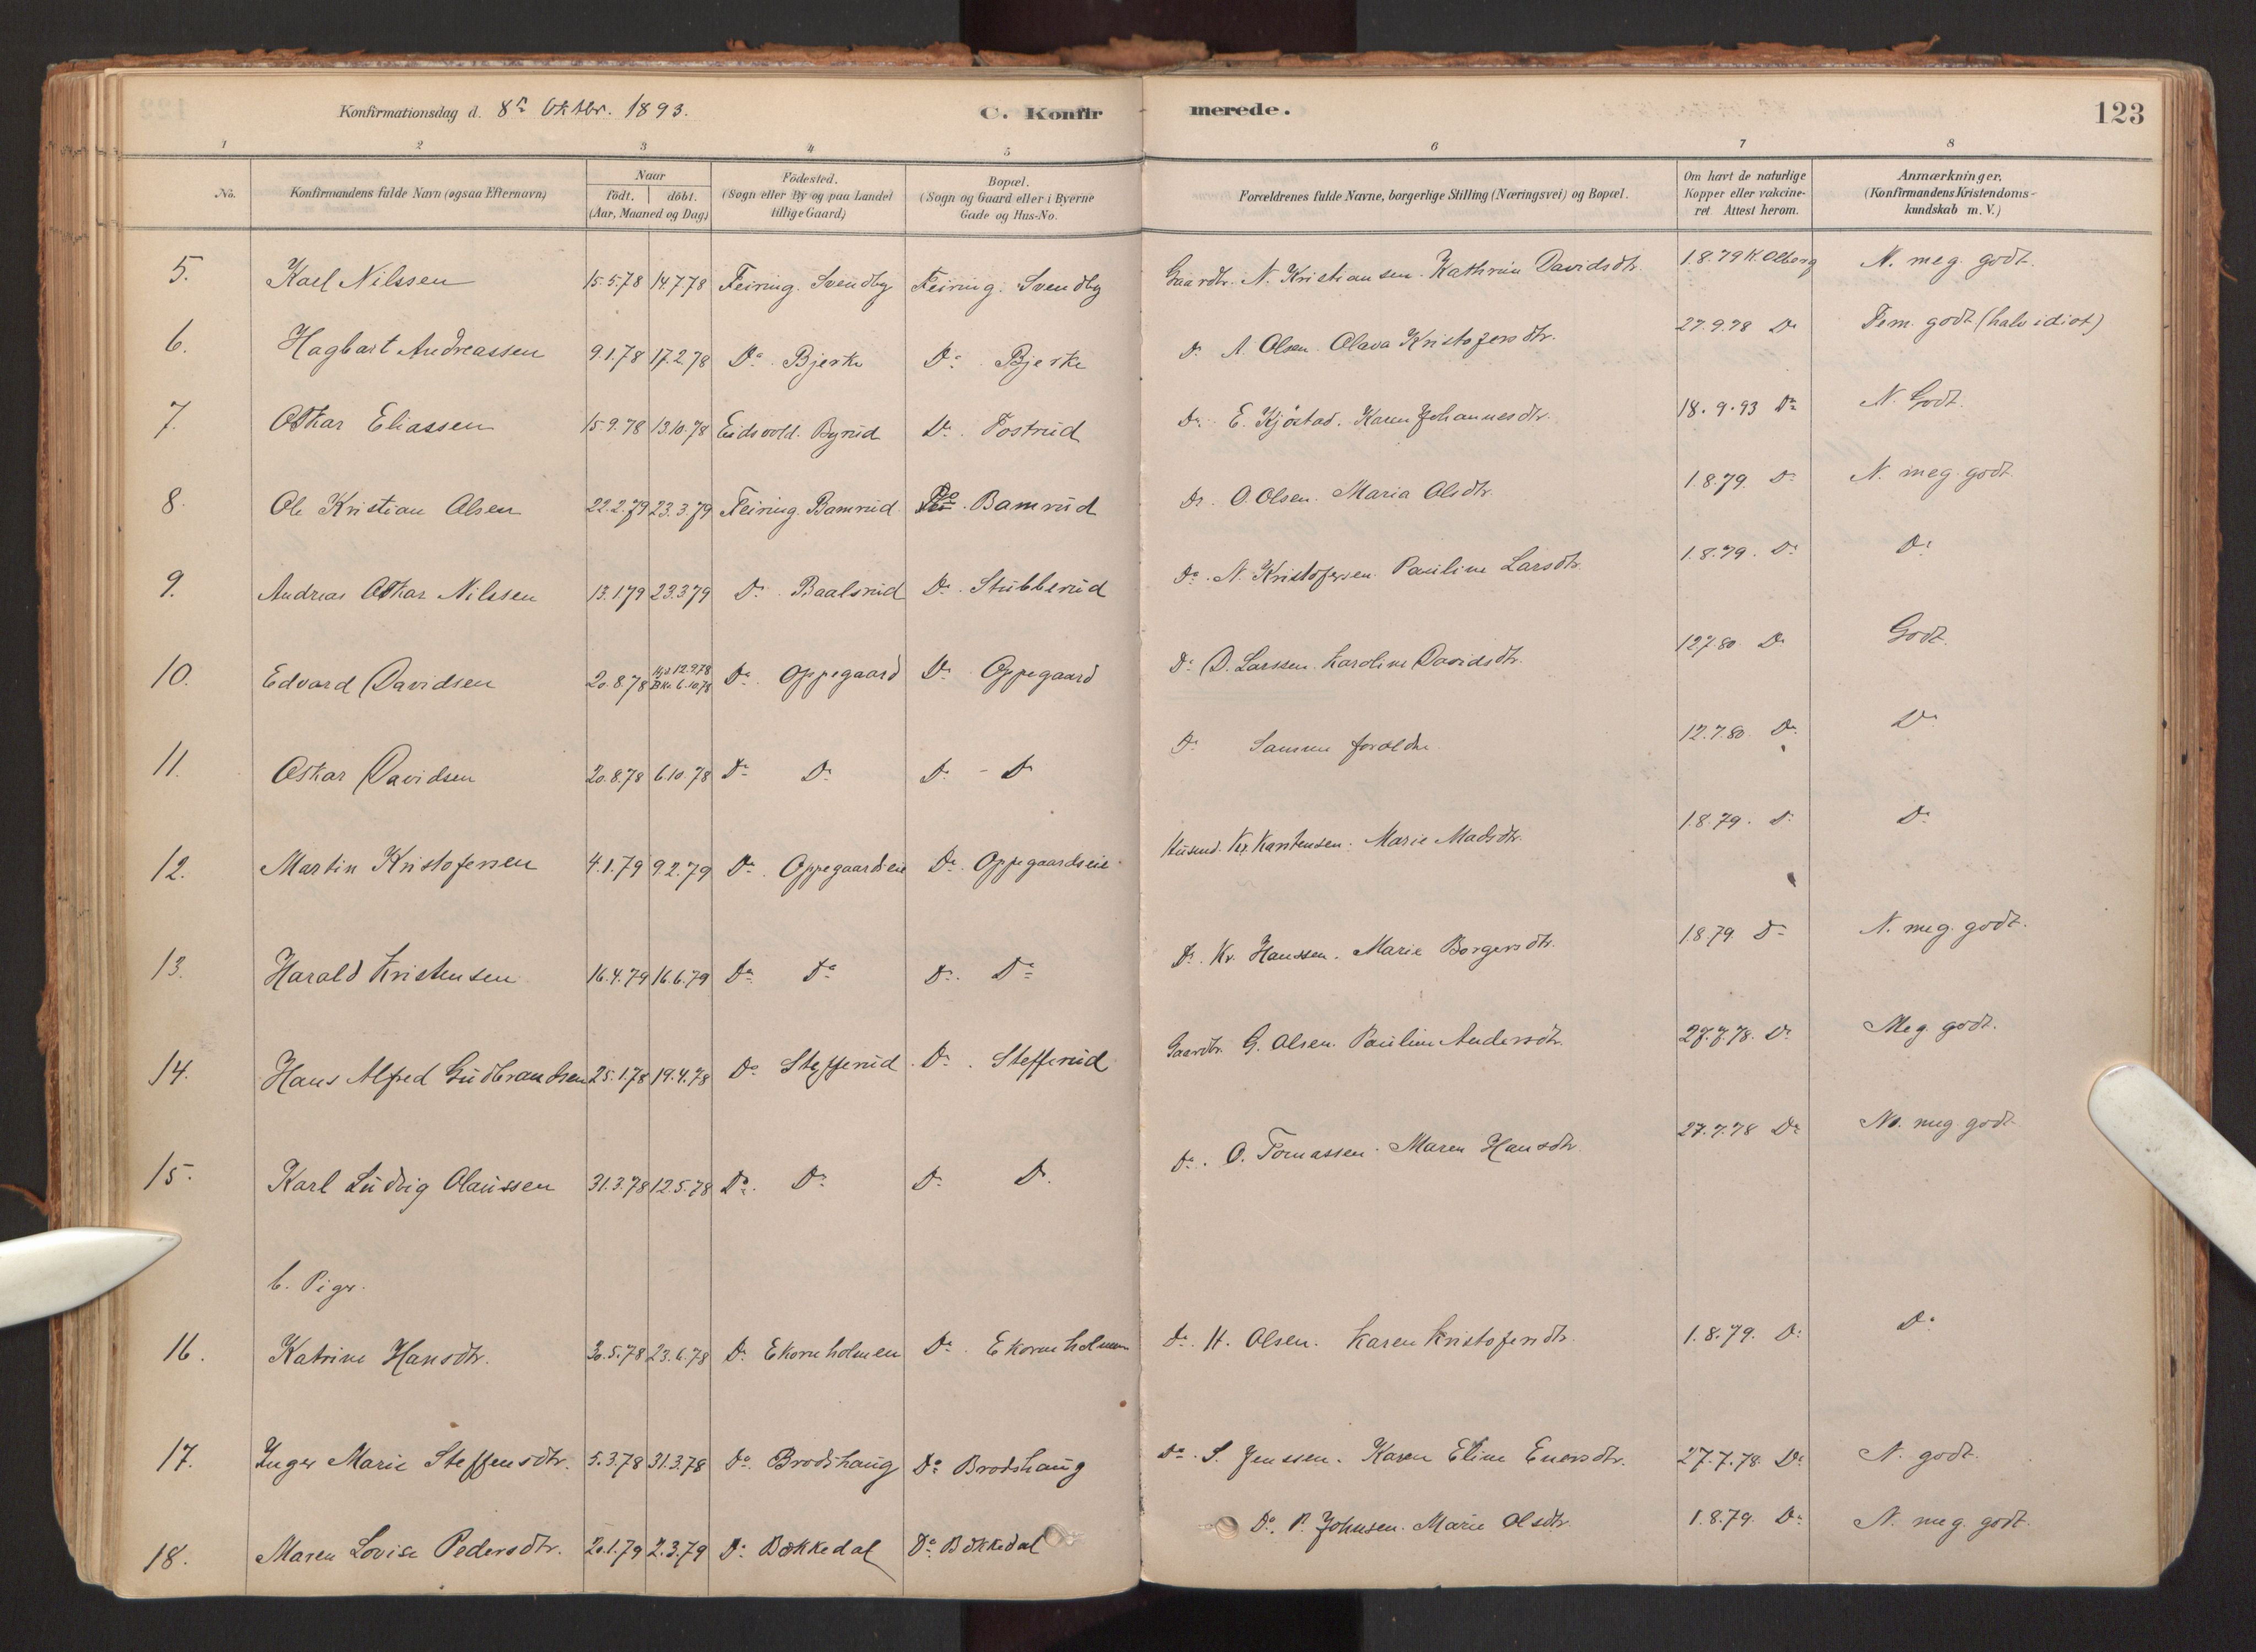 Konfirmationsdag d. 8de Oktbr. 1893. C. Konfirmerede. 123
1 2 3 4 5 6 7 8
No. Konfirmandens fulde Navn (ogsaa Efternavn) Naar født. døbt. (Aar, Maaned og Dag) Fødested. (Sogn eller By og paa Landet tillige Gaard) Bopæl. (Sogn og Gaard eller i Byerne Gade og Hus-No. Forældrenes fulde Navne, borgerlige Stilling (Næringsvei) og Bopæl. Om havt de naturlige Kopper eller vakcineret Attest herom. Anmærkninger. (Konfirmandens Kristendomskundskab m. V.)
5. Karl Nilssen 15.5.78 14.7.78 Feiring. Svendby Feiring. Svendby Gaardbr. N. Kristiansen. Kathrine Davidsdtr. 1.8.79 K. Olberg N. meg. godt.
6. Hagbart Andreassen 9.1.78 17.2.78 Do. Bjerke Do. Bjerke Do A. Olsen. Olava Kristofersdtr. 27.9.78 Do Tem. godt (halv idiot)
7. Oskar Eliassen 15.9.78 13.10.78 Eidsvold. Byrud Do. Tostrud Do. E. Kjöstad. Karen Johannesdtr. 18.9.93 Do N. Godt.
8. Ole Kristian Olsen 22.2.79 23.3.79 Feiring. Bamrud Do. Bamrud Do. O. Olsen. Maria Olsdtr. 1.8.79. Do N. meg. godt.
9. Andreas Oskar Nilssen 13.1.79 23.3.79 Do. Baalsrud Do. Stubberud Do. N. Kristofersen. Pauline Larsdtr. 1.8.79. Do Do
10. Edvard Davidsen 20.8.78 Hjd 12.9.78 B.K. 6.10.78 Do. Oppegaard Do. Oppegaard Do D. Larssen. Karoline Davidsdtr. 12.7.80 Do Godt.
11. Oskar Davidsen 20.8.78 6.10.78 Do Do Do - Do Do Samme forældre. 12.7.80. Do Do
12. Martin Kristofersen 4.1.79 9.2.79 Do. Oppegaardseie Do. Oppegaardseie Husmd. Kr. Karstensen. Marie Madsdtr. 1.8.79. Do Do
13. Harald Kristensen 16.4.79 16.6.79 Do Do Do. Do Do. Kr. Hanssen. Marie Borgersdtr. 1.8.79 Do N. meg. godt.
14. Hans Alfred Gudbrandsen 25.1.78 19.4.78 Do Stefferud. Do. Steffenrud Gaardbr. G. Olsen. Pauline Andersdtr. 27.7.78. Do Meg. godt.
15. Karl Ludvig Olaussen 31.3.78 12.5.78 Do. Do Do Do. Do. O. Tomassen. Maren Hansdtr. 27.7.78 Do No. meg. godt
b. Piger.
16. Katrine Hansdtr. 30.5.78 23.6.78 Do. Ekornholmen Do. Ekornholmen Do. H. Olsen. Karen Kristofersdtr. 1.8.79. Do Do
17. Inger Marie Steffensdtr. 5.3.78 31.3.78 Do. Brodshaug Do Brodshaug Do. S. Jenssen. Karen Eline Enersdtr. 27.7.78. Do N. godt.
18. Maren Lovise Pedersdtr. 20.1.79 2.3.79 Do Bækkedal Do. Bækkedal Do. P. Johnsen. Marie Olsdtr. 1.8.79. Do N. meg. godt.